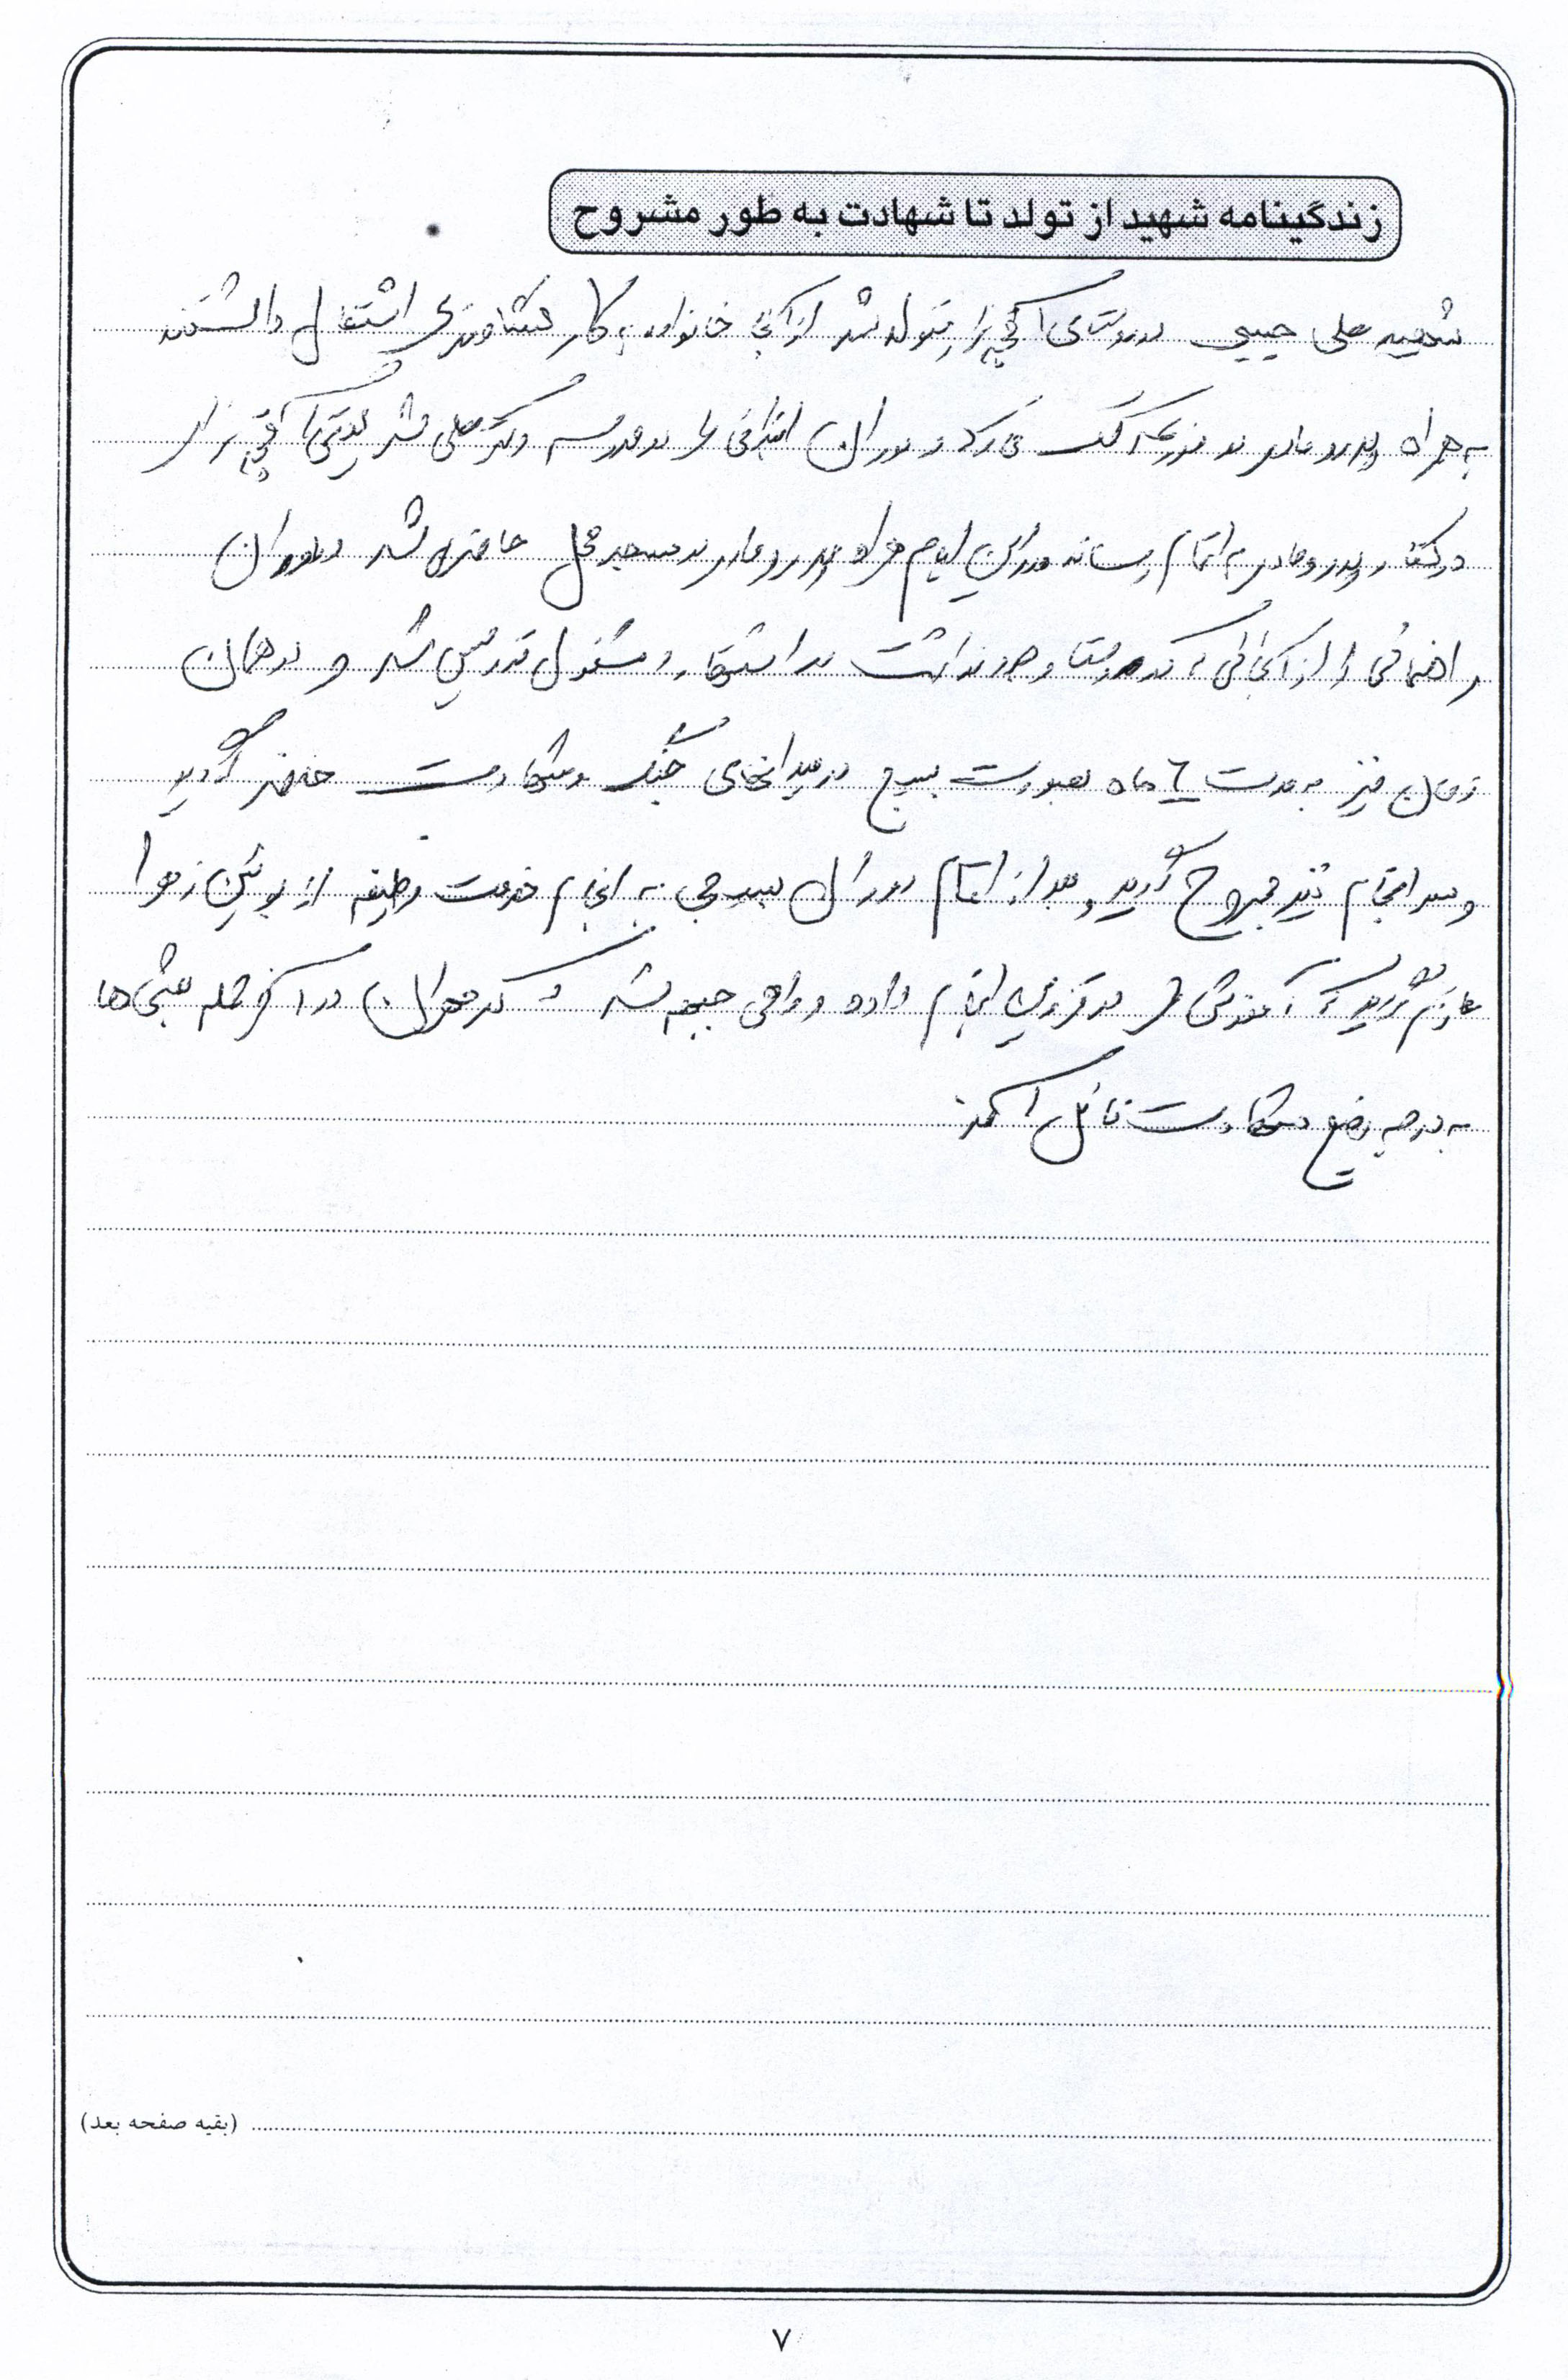 زندگینامه شهید از تولد تا شهادت به طور مشروح
شهید علی حبیبی در روستای آقچه مزار متولد شد از آنجائیکه خانواده به کار کشاورزی اشتغال داشتند
به همراه پدر و مادر در مزرعه کمک می کرد و دوران ابتدائی را در مدرسه دکتر علی شریعتی آقچه مزار
در کنار پدر و مادر به اتمام رساند در این ایام همراه پدر و مادر در مسجد محل حاضر می شد و دوران
راهنمائی را از آنجائی که در روستا وجود نداشت در اشتهارد مشغول تدریس شد و در همان
زمان نیز به مدت ٦ ماه بصورت بسیج در میدانهای جنگ و شهادت حاضر گردید
و سر انجام نیز مجروح گردید و بعد از اتمام دوران بسیجی به انجام خدمت وظیفه از بوئین زهرا
عازم گردید که آموزشی را در قزوین انجام داده و راهی جبهه شد و در مهران در آخر حمله عراقی ها
به درجه رفیع شهادت نائل آمد.
(بقیه صفحه بعد)
۷